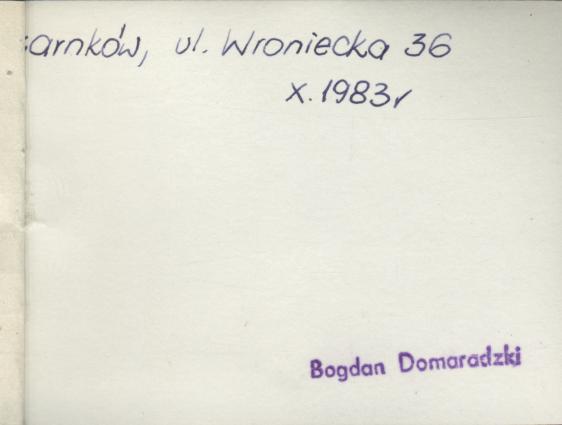 arnków, ul. Wroniecka 36
X. 1983r
Bogdan Domaradzki